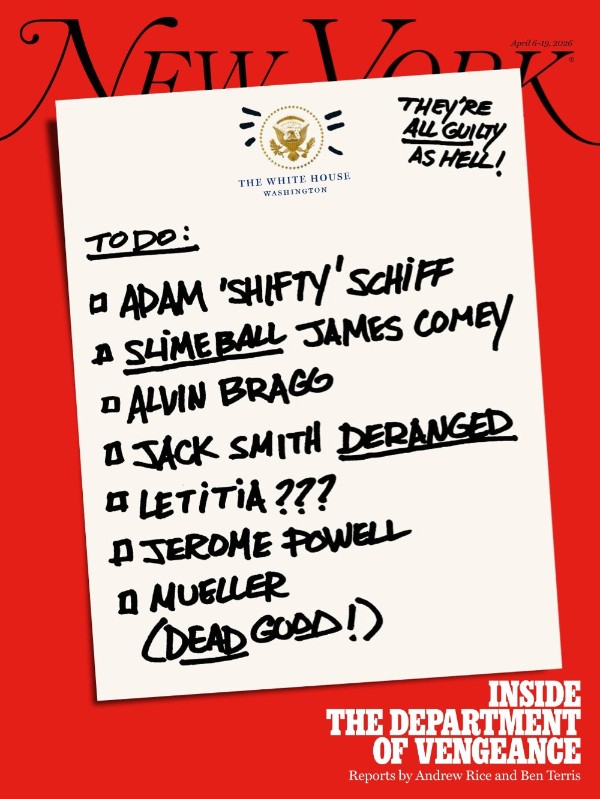 April 6–19, 2026
NEW YORK®
THEY'RE
ALL GUILTY
AS HELL!
THE WHITE HOUSE
WASHINGTON
TO DO:
ADAM 'SHIFTY' SCHIFF
SLIMEBALL JAMES COMEY
ALVIN BRAGG
JACK SMITH DERANGED
LETITIA ???
JEROME POWELL
MUELLER
(DEAD GOOD!)
INSIDE
THE DEPARTMENT
OF VENGEANCE
Reports by Andrew Rice and Ben Terris